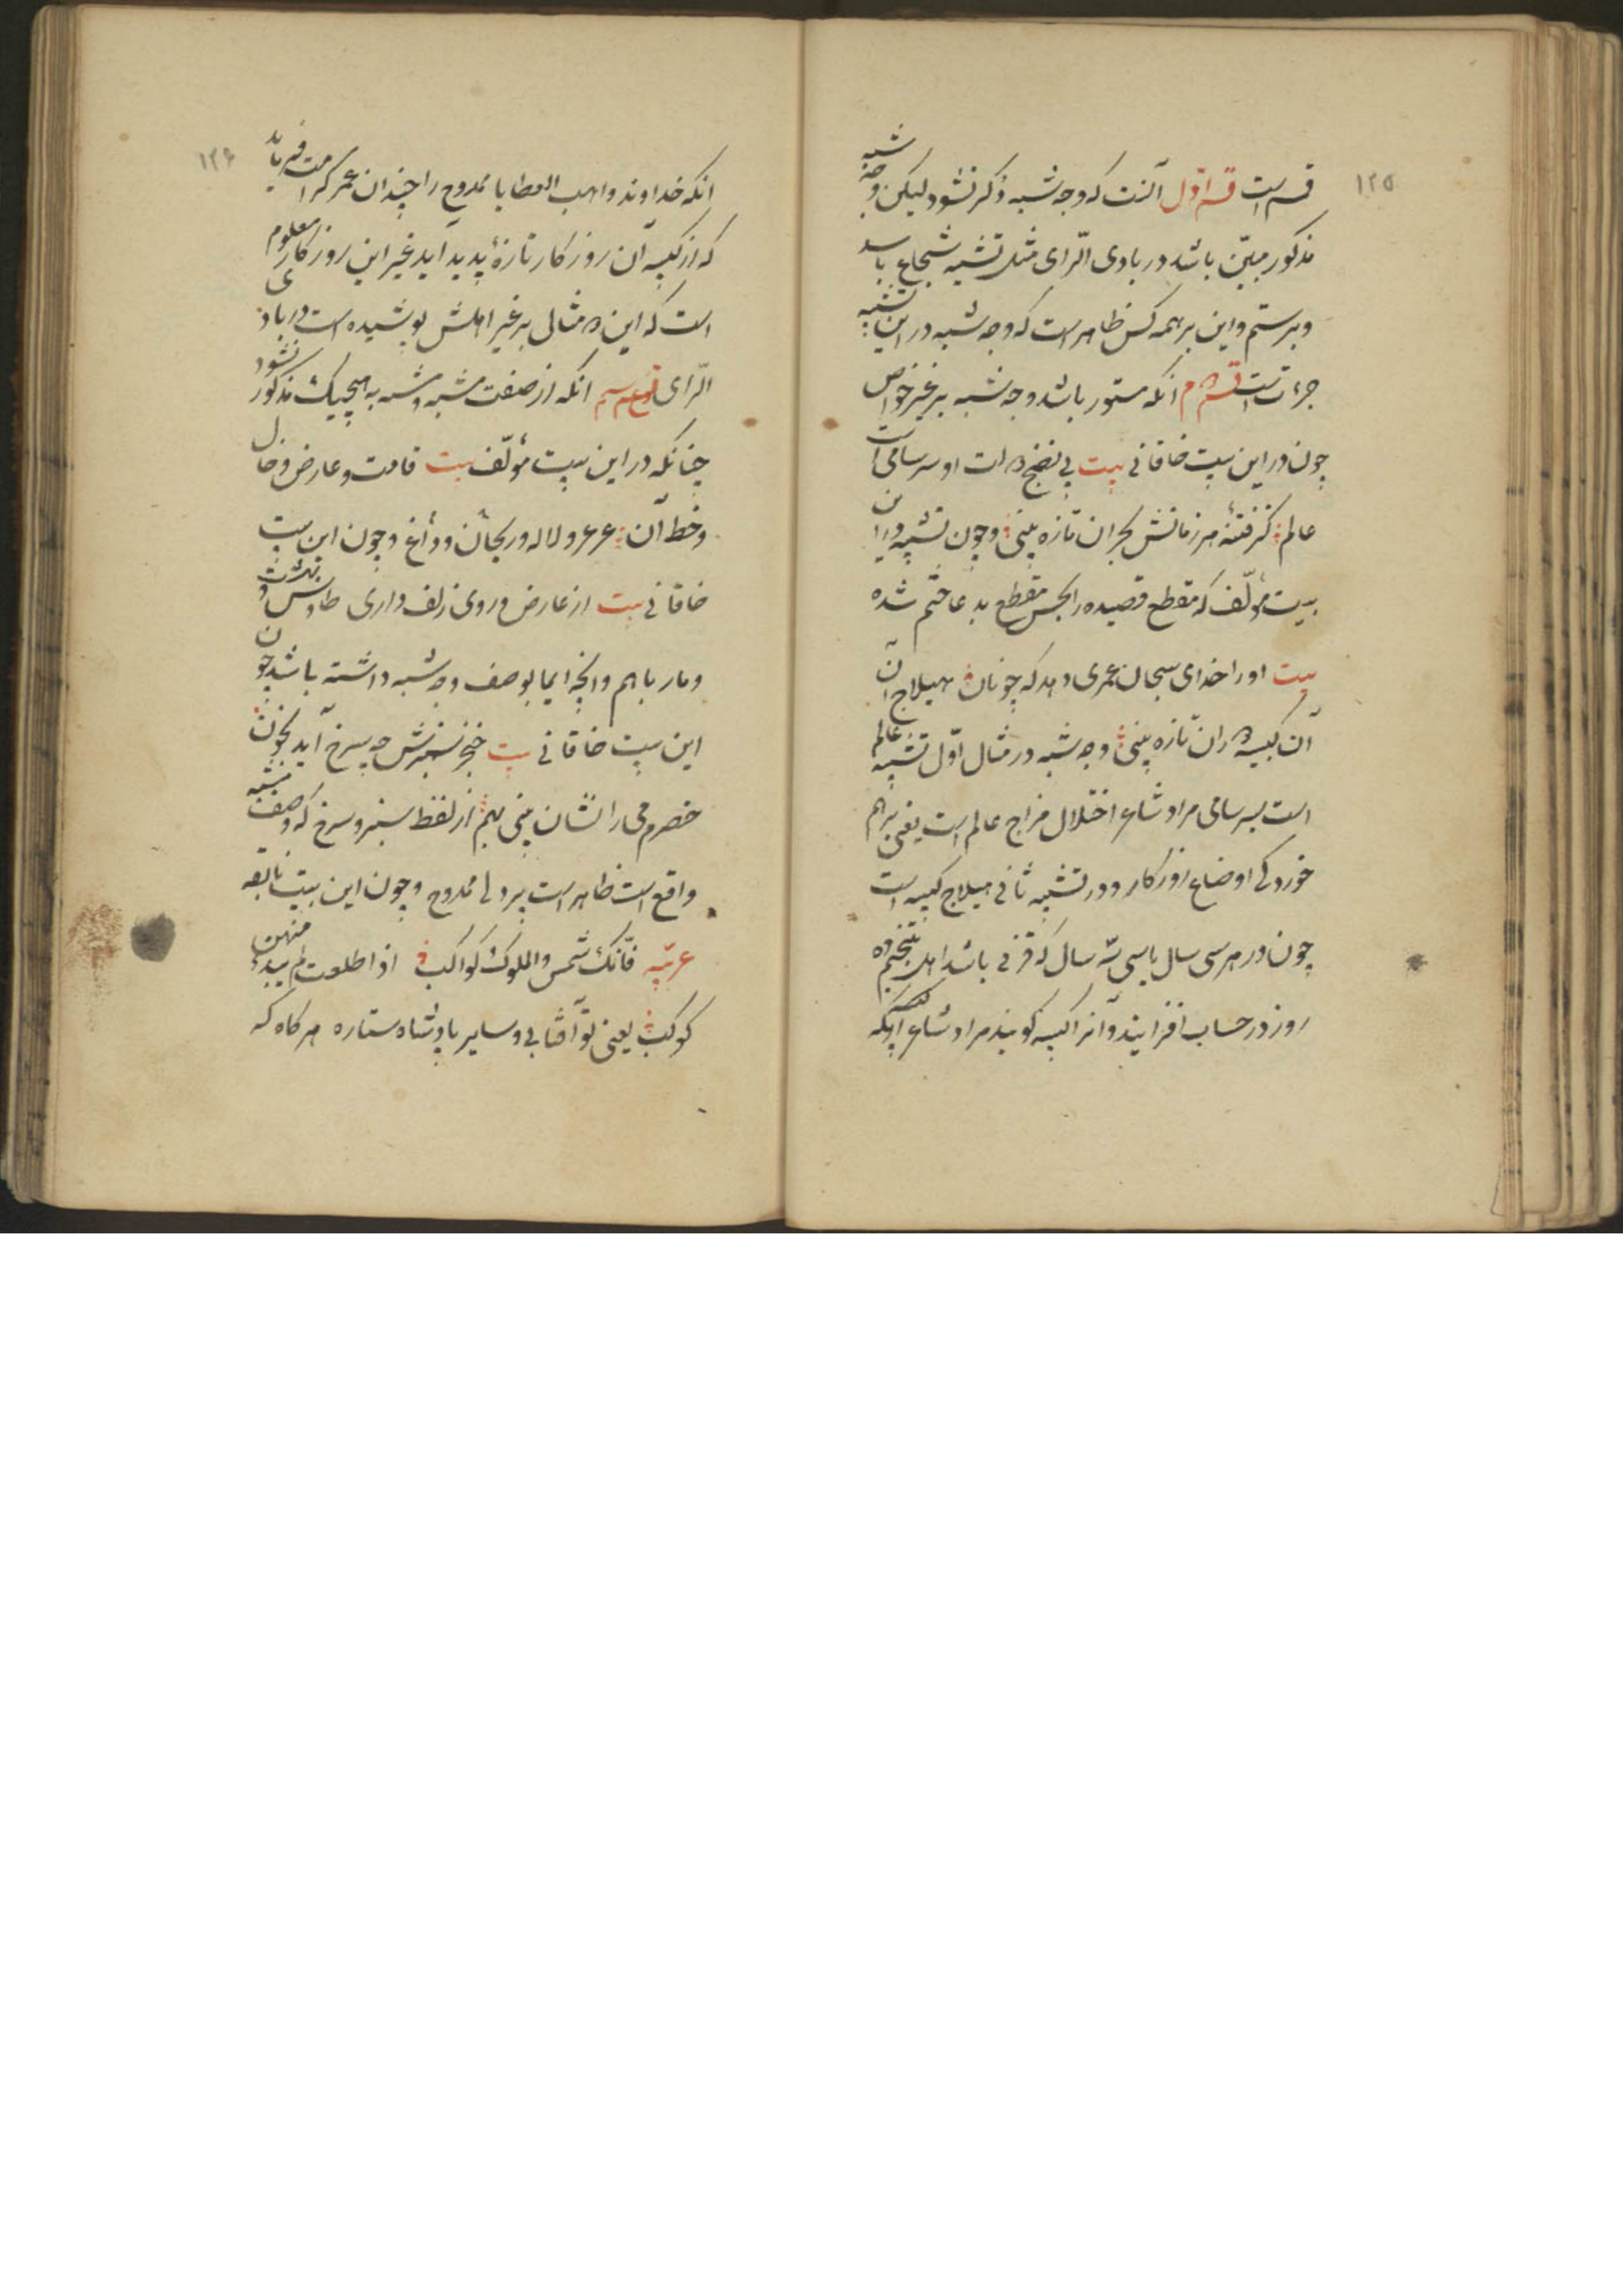 ۱۲۵
قسم است قسم اوّل آنست که وجه شبه ذکر نشود لیکن وجه شبه
مذکور مبیّن باشد در بادی الرّای مثل تشبیه شجاع باسد
وبرستم واین بر همه کس ظاهر است که وجه شبه در این تشبیه
جرءتست قسم دوم انکه مستور باشد وجه شبه بر غیر خواص
چون در این بیت خاقانی بیت بی نضج دولت او سرسامی است
عالم کز فتنه هر زمانش بحران تازه بینی وچون تشبیه در این
بیت مؤلّف که مقطع قصیده را بحسن مقطع بدعا ختم شده
بیت او را خدای سبحان عمری دهد که چونان هیلاج آن
آن کبیسه دوران تازه بینی وجه شبه در مثال اوّل تشبیه عالم
است بسرسامی مراد شاعر اختلال مزاج عالم است یعنی برهم
خوردکی اوضاع روزکار ودر تشبیه ثانی هیلاج کبیسه است
چون در هر سی سال یا سی سه سال که قرنی باشد اهل تنجیم ده
روز در حساب افزایند وآنرا کبیسه کویند مراد شاعر آنکه
۱۲۶
انکه خداوند واهب العطایا ممدوح را چندان عمر کرامت فرماید
که از کبیسه آن روزکار تازهٔ پدید آید غیر این روزکار معلوم
است که این دو مثالی بر غیر اهلش پوشیده است در بادی
الرّای نوع سیم انکه از صفت مشبه ومشبه به هیچیک مذکور نشود
چنانکه در این بیت مؤلّف بیت قامت وعارض وخال
وخط آن عرعر ولاله وریحان وداغ وچون این بیت
خاقانی بیت از عارض وروی زلف داری طاوس وبهشت
ومار باهم وانچه ایما بوصف وجه شبه داشته باشد چون
این بیت خاقانی بیت خنجر سبزش چو سرخ آید بخون
خصرم می را نشان بینی بهم از لفظ سبز وسرخ که وصف مشبه
واقع است ظاهر است پردلی ممدوح وچون این بیت نابغه
عربیّه فانّک شمس والملوک کواکب اذا طلعت لم یبد منهن
کوکب یعنی تو آفتابی وسایر پادشاه ستاره هر کاه که